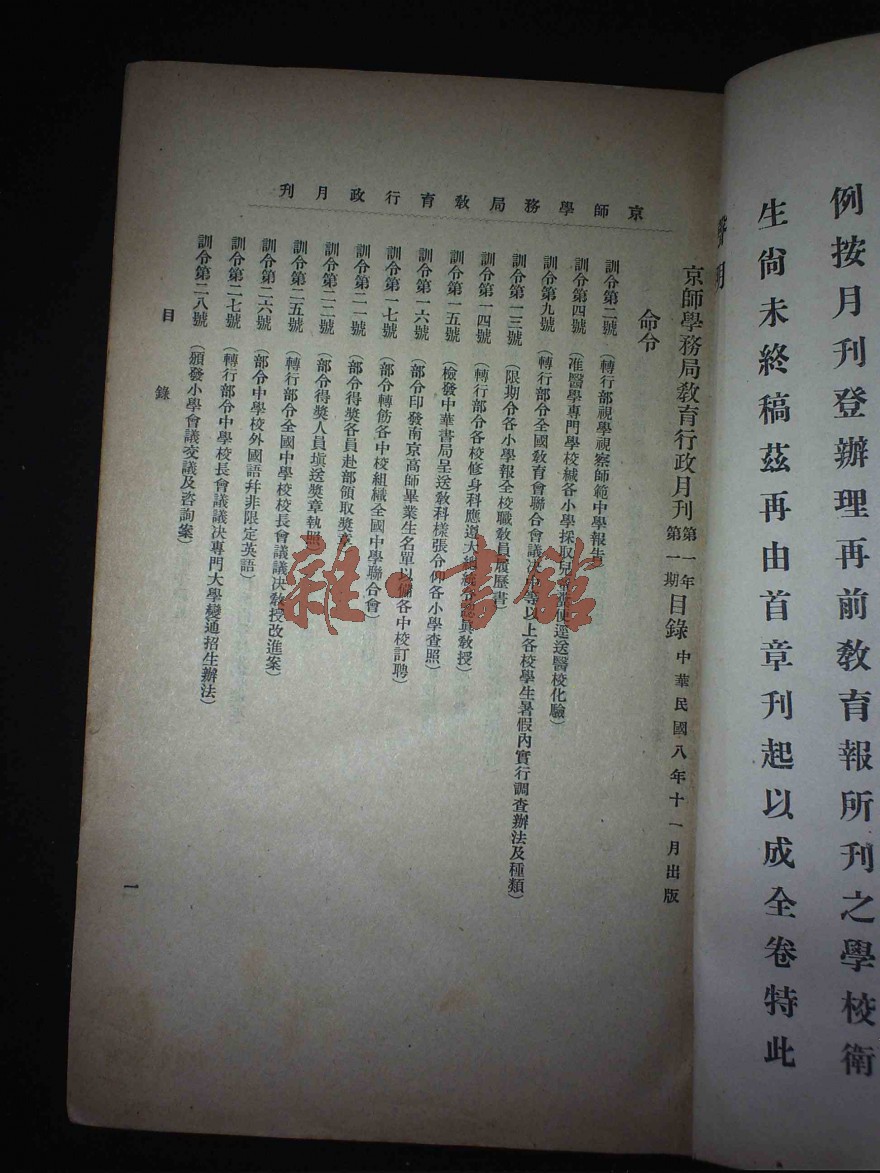 例按月刊登辦理再前教育報所刊之學校衛
生尙未終稿茲再由首章刊起以成全卷特此
聲明
京師學務局教育行政月刊
京師學務局教育行政月刊 第一年第一期目錄 中華民國八年十一月出版
命令
訓令第二號 (轉行部視學視察師範中學報告
訓令第四號 (准醫學專門學校緘各小學採取兒 便逕送醫校化驗)
訓令第九號 (轉行部令全國教育會聯合會議決 等以上各校學生暑假內實行調查辦法及種類)
訓令第一三號 (限期令各小學報全校職教員履歷書)
訓令第一四號 (轉行部令各校修身科應遵大總統 教授)
訓令第一五號 (檢發中華書局呈送教科樣張令仰各小學查照)
訓令第一六號 (部令印發南京高師畢業生名單以備各中校訂聘)
訓令第一七號 (部令轉飭各中校組織全國中學聯合會)
訓令第二一號 (部令得獎各員赴部領取獎章
訓令第二二號 (部令得獎人員塡送獎章執照)
訓令第二五號 (轉行部令全國中學校校長會議議決教授改進案)
訓令第二六號 (部令中學校外國語幷非限定英語)
訓令第二七號 (轉行部令中學校長會議議決專門大學變通招生辦法)
訓令第二八號 (頒發小學會議交議及咨詢案)
目錄
一
雜·書館